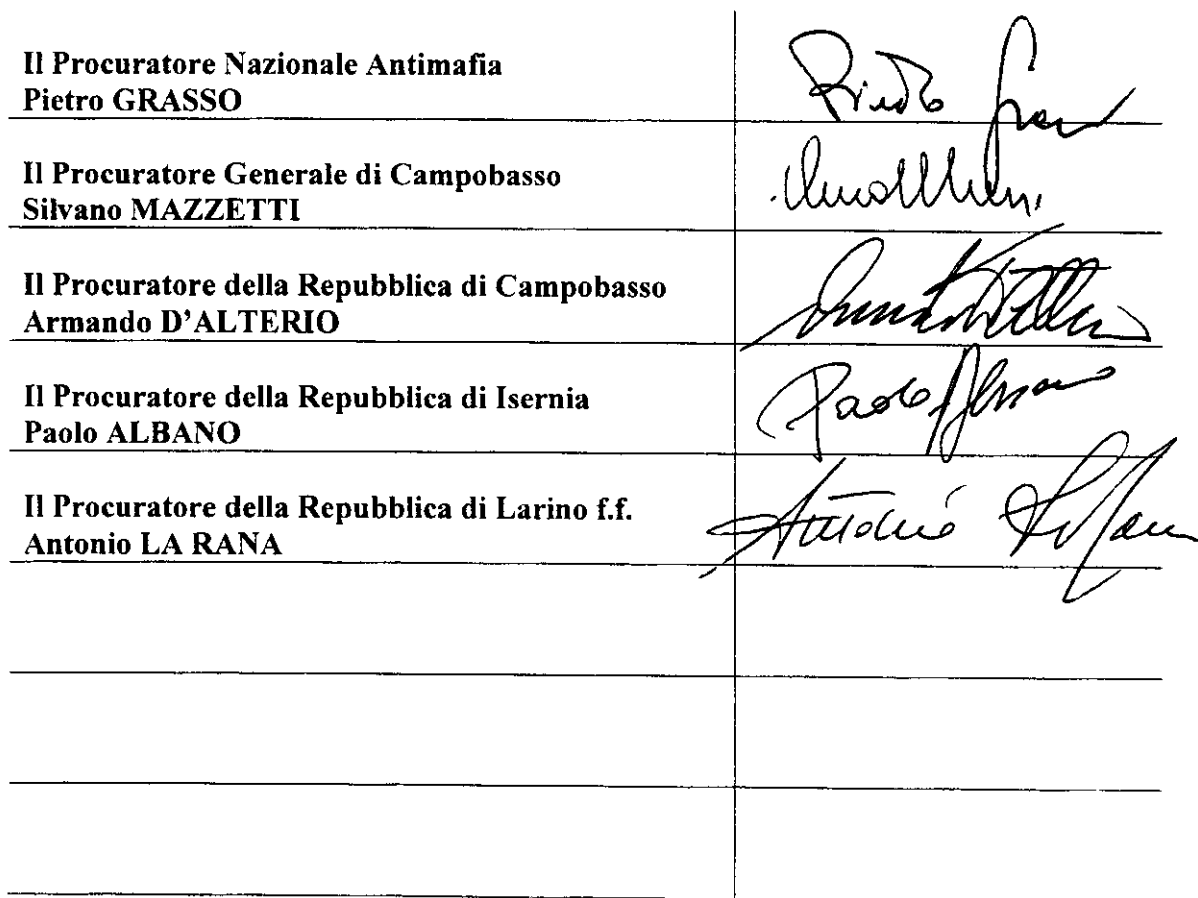 Il Procuratore Nazionale Antimafia
Pietro GRASSO
Il Procuratore Generale di Campobasso
Silvano MAZZETTI
Il Procuratore della Repubblica di Campobasso
Armando D'ALTERIO
Il Procuratore della Repubblica di Isernia
Paolo ALBANO
Paolo
Il Procuratore della Repubblica di Larino f.f.
Antonio LA RANA
Antonio